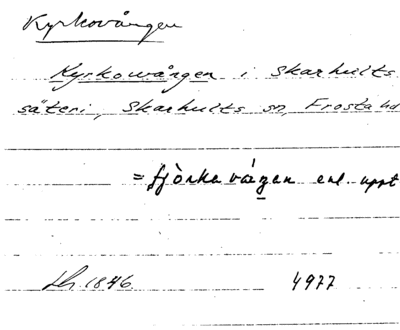 Kyrkovången
Kyrkovången i Skarhults
säteri, Skarhults sn, Frosta hd
= fjòrkavázen enl. uppt
Lh. 1876. 4977